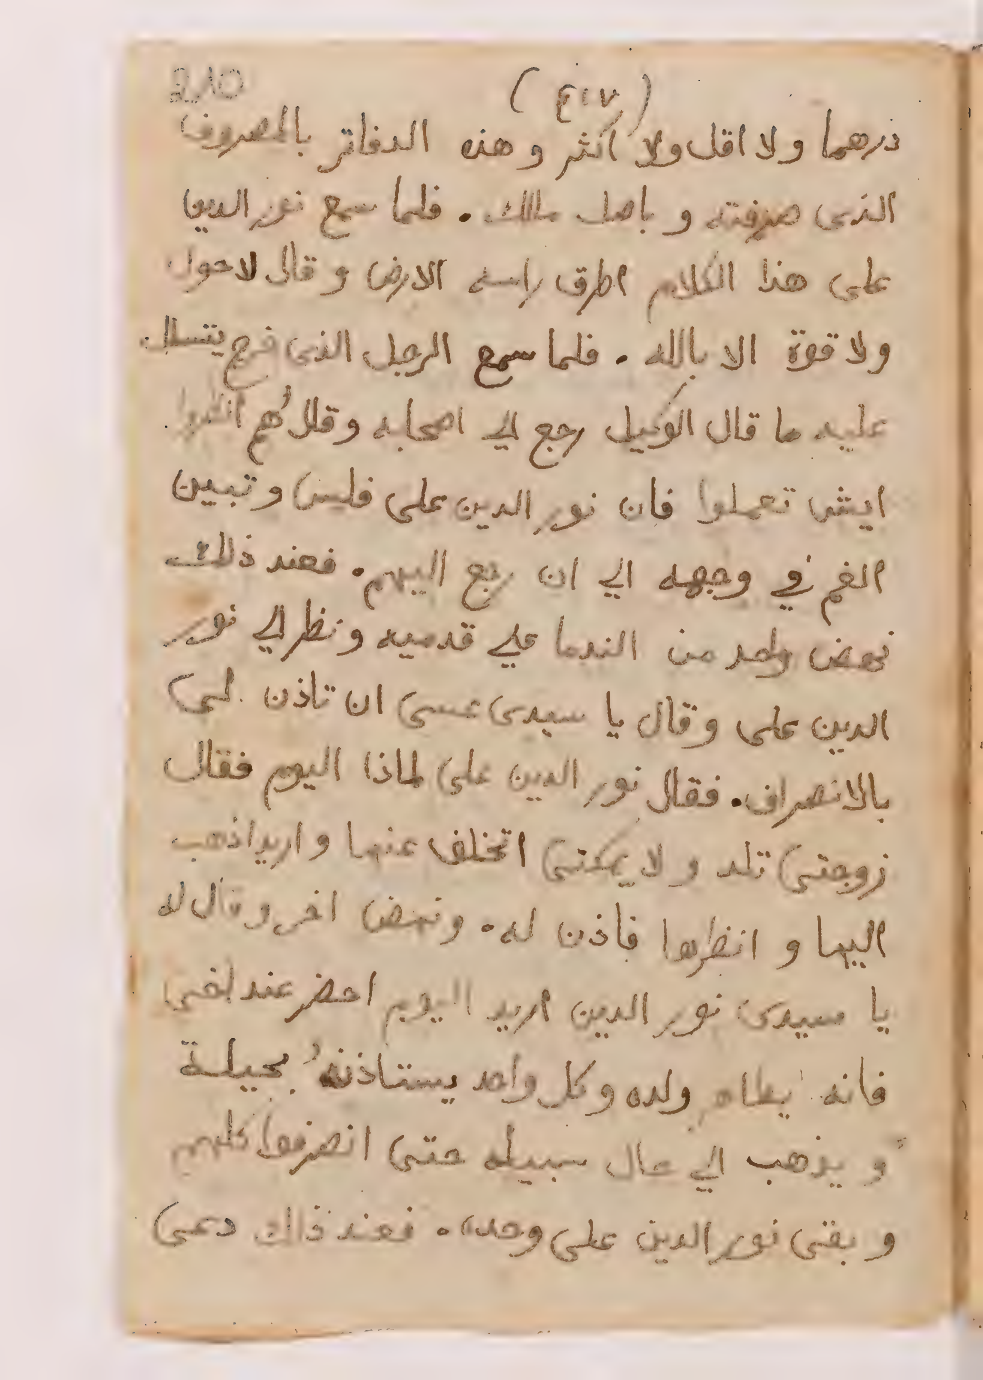 (٤١٧)
درهما ولا اقل ولا اكثر وهذه الدفاتر بالمصروف
الذى صرفته و باصل مالك . فلما سمع نور الدين
على هذا الكلام اطرق راسه الارض و قال لا حول
ولا قوة الا بالله . فلما سمع الرجل الذى خرج يتسلل
عليه ما قال الوكيل رجع الي اصحابه وقال لهم انظروا
ايش تعملوا فان نور الدين على فلس و تبين
الغم في وجهه الي ان رجع اليهم . فعند ذلك
نهض واحد من الندما علي قدميه و نظر الي نور
الدين على وقال يا سيدى عسى ان تاذن لى
بالانصراف . فقال نور الدين على لماذا اليوم فقال
زوجتى تلد و لا يمكننى اتخلف عنها و اريد اذهب
اليها و انظرها فاذن له . ونهض اخر وقال له
يا سيدى نور الدين اريد اليوم احضر عند اخى
فانه يطاهر ولده وكل واحد يستاذنهُ بحيلة
و يذهب الي حال سبيله حتى انصرفوا كلهم
و بقى نور الدين على وحده . فعند ذلك دعى